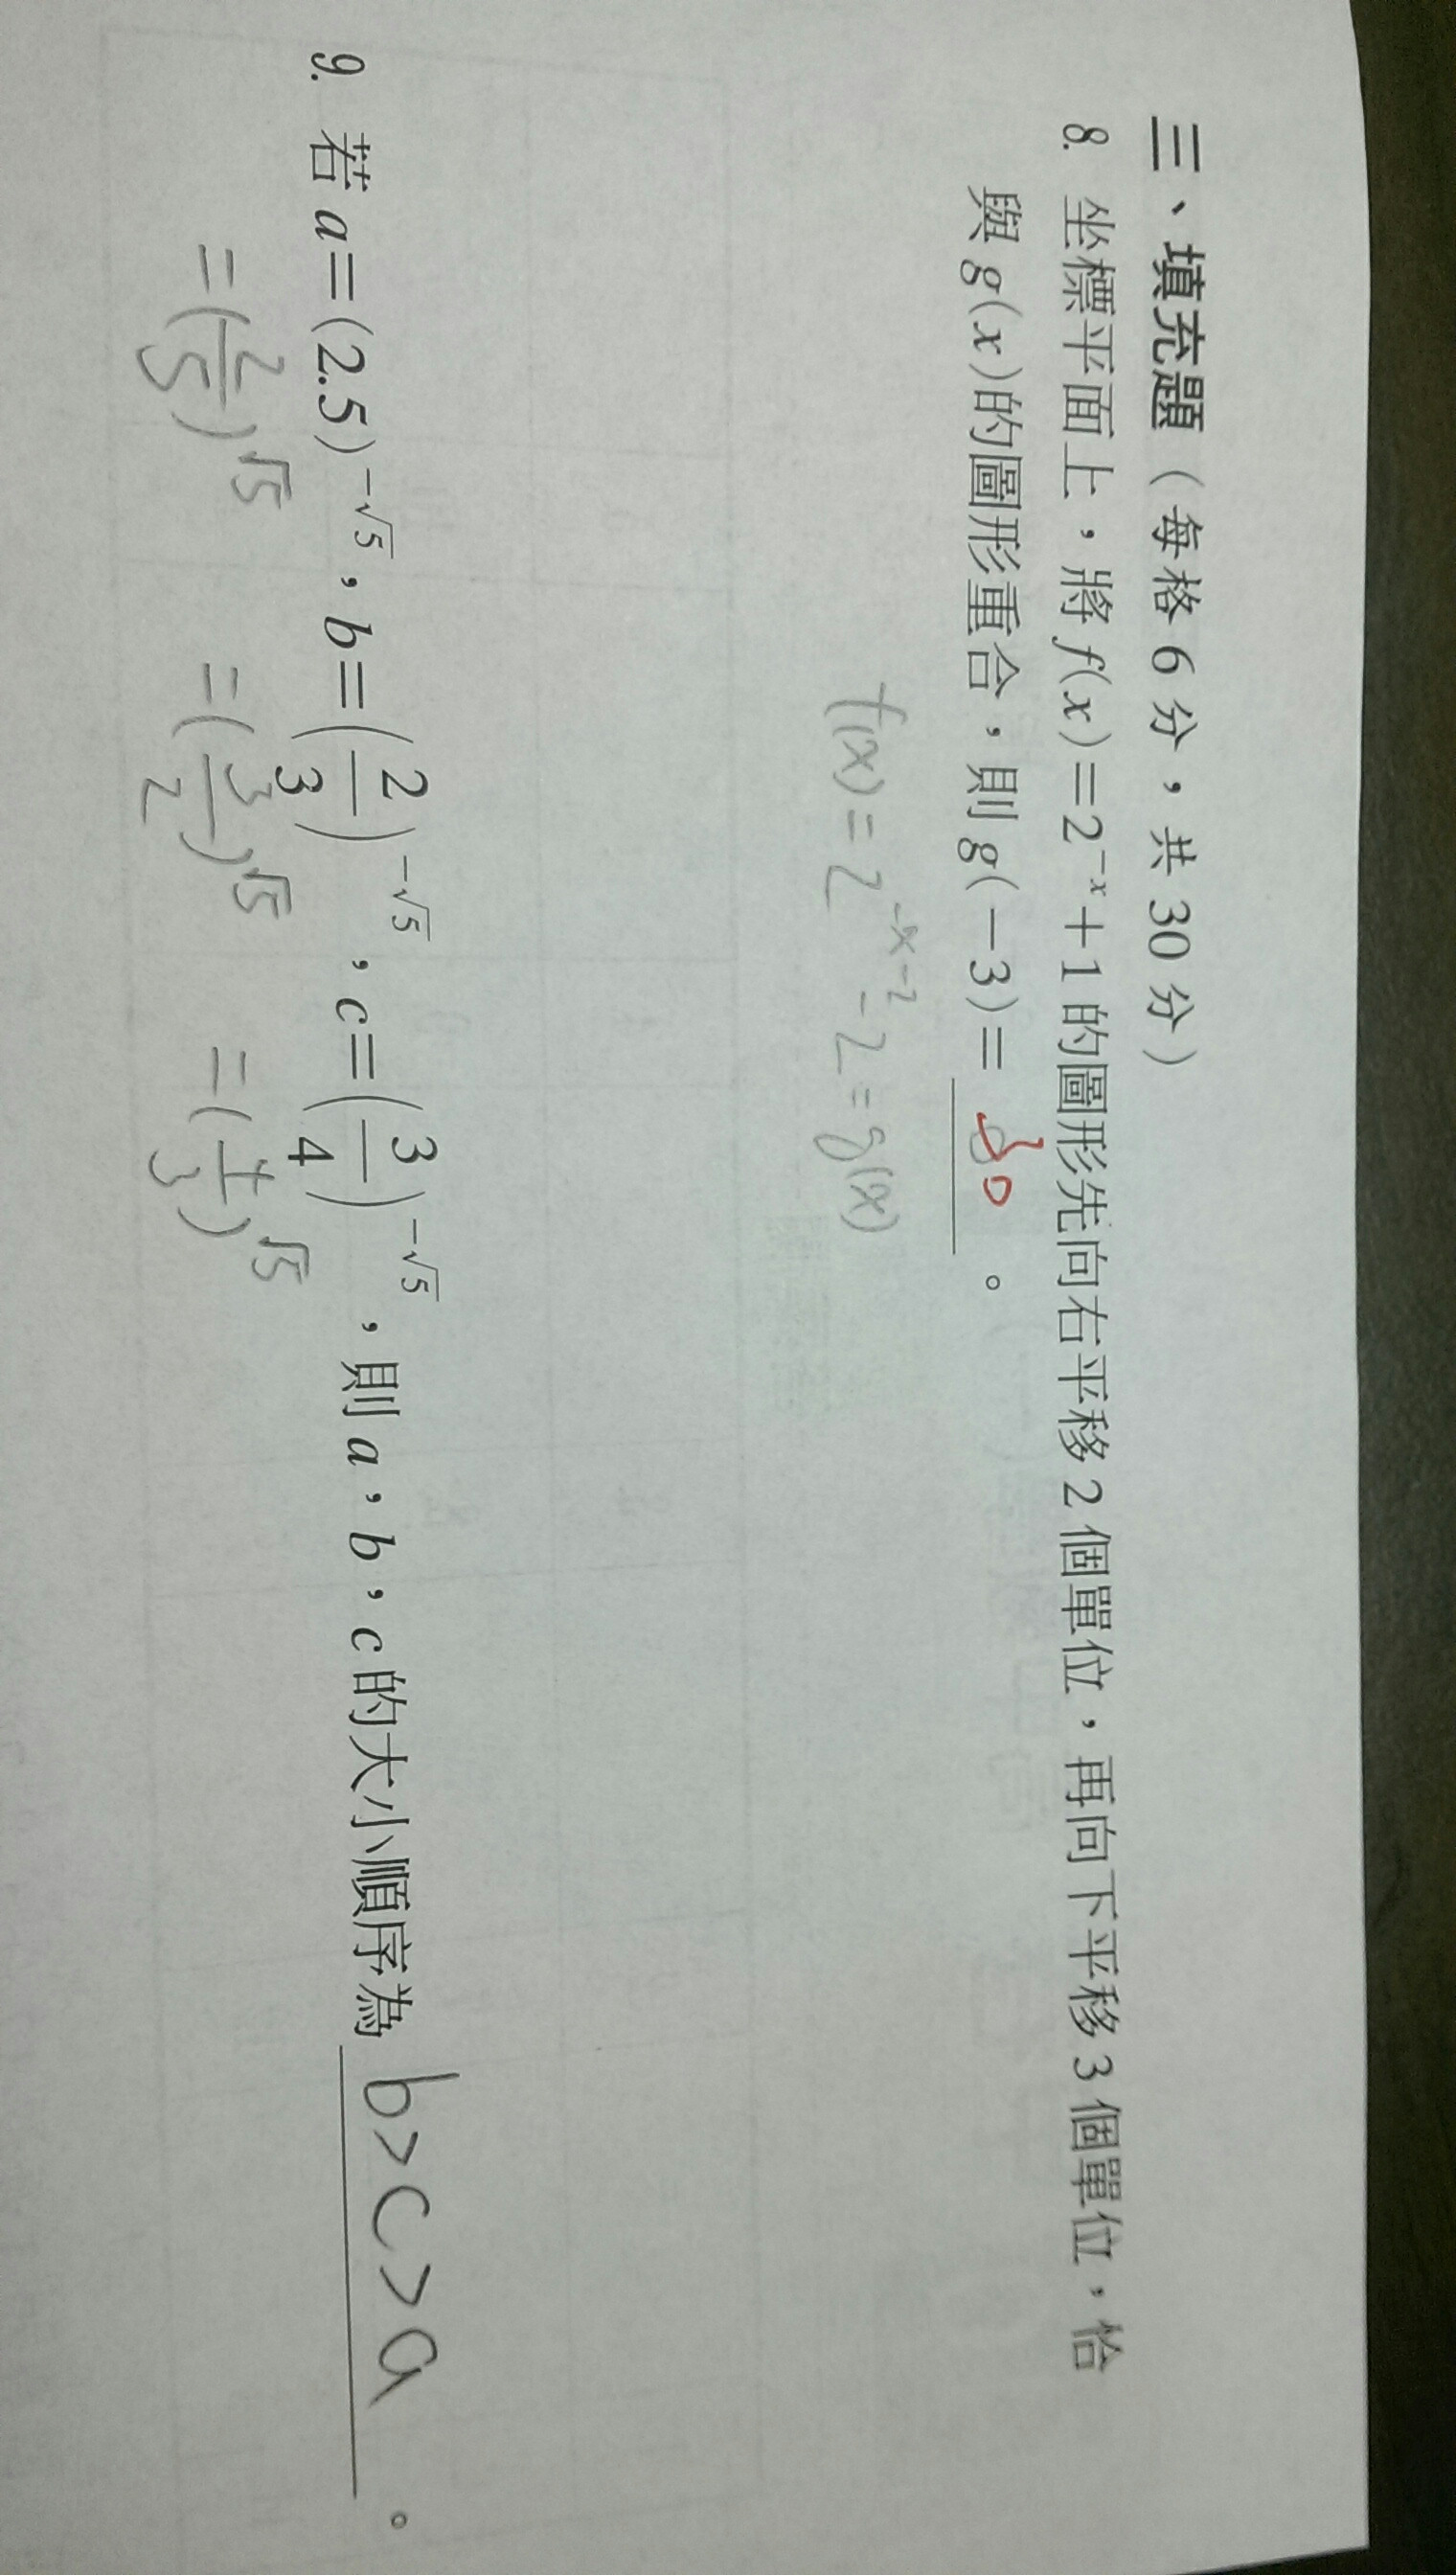 三、填充題（每格 6 分，共 30 分）
8. 坐標平面上，將 f(x)=2⁻ˣ+1 的圖形先向右平移 2 個單位，再向下平移 3 個單位，恰
與 g(x)的圖形重合，則 g(−3)= 30 。
f(x) = 2^(-x-2) - 2 = g(x)
9. 若 a=(2.5)^(-√5)，b=(2/3)^(-√5)，c=(3/4)^(-√5)，則 a，b，c 的大小順序為 b>c>a 。
=(2/5)^√5 =(3/2)^√5 =(4/3)^√5